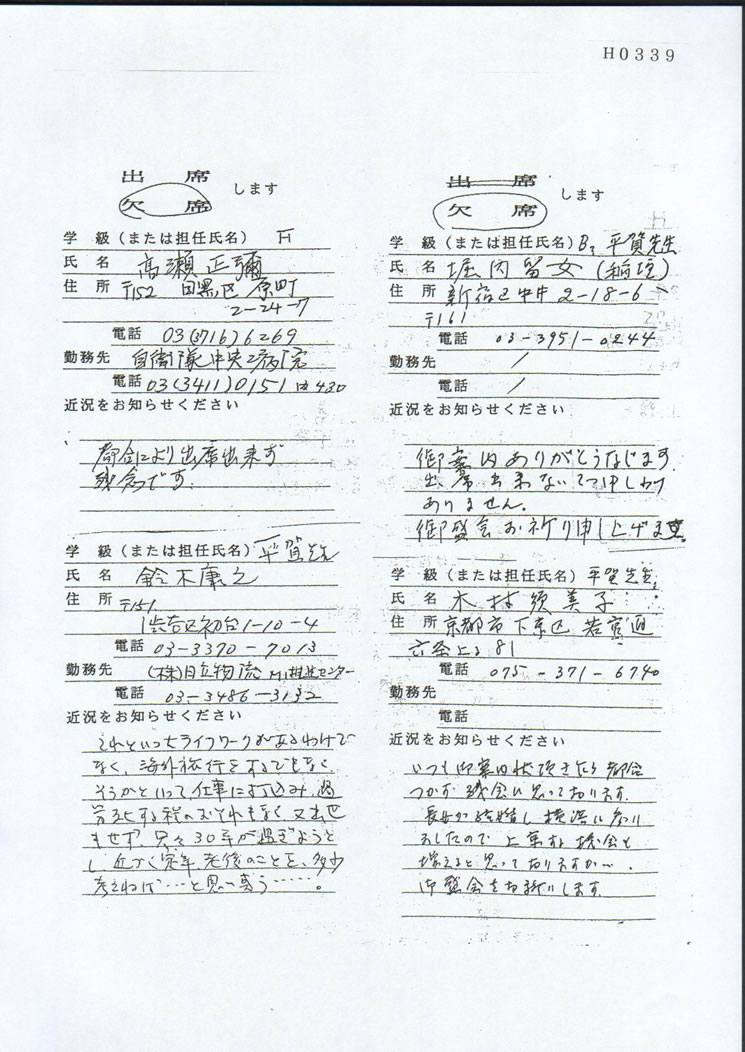 H0339
出 席
欠 席
します
学 級(または担任氏名) H
氏 名 高瀬正彌
住 所 〒152 目黒区 原町
2-24-7
電話 03(3716)6269
勤務先 自衛隊中央病院
電話 03(3411)0151 内430
近況をお知らせください
都合により出席出来ず
残念です.
学 級(または担任氏名) 平賀先生
氏 名 鈴木康之
住 所 〒151
渋谷区初台1-10-4
電話 03-3370-7013
勤務先 (株)日立物流 推進センター
電話 03-3486-3132
近況をお知らせください
これといったライフワークがあるわけで
なく、海外旅行をするでもなく
そうかといって、仕事に打込み、過
労死する程のおそれもなく 又出世
もせず、只々 30年が過ぎようと
し 近づく定年、老後のことを、多少
考えねば…と思う……。
出 席
欠 席
します
学 級(または担任氏名) B 平賀先生
氏 名 堀内留女(稲垣)
住 所 新宿区中井 2-18-6
〒161
電話 03-3951-0244
勤務先 /
電話 /
近況をお知らせください
御案内ありがとうございます.
出席出来ないで申しわけ
ありません.
御盛会お祈り申し上げます.
学 級(または担任氏名) 平賀先生
氏 名 木村須美子
住 所 京都市下京区 若宮通
六条上る 81
電話 075-371-6740
勤務先
電話
近況をお知らせください
いつも御案内状頂きたら都合
つかず 残念に思っております.
長女が結婚し 横浜に参り
ましたので 上京する機会も
増えると思っておりますが….
御盛会をお祈りします.